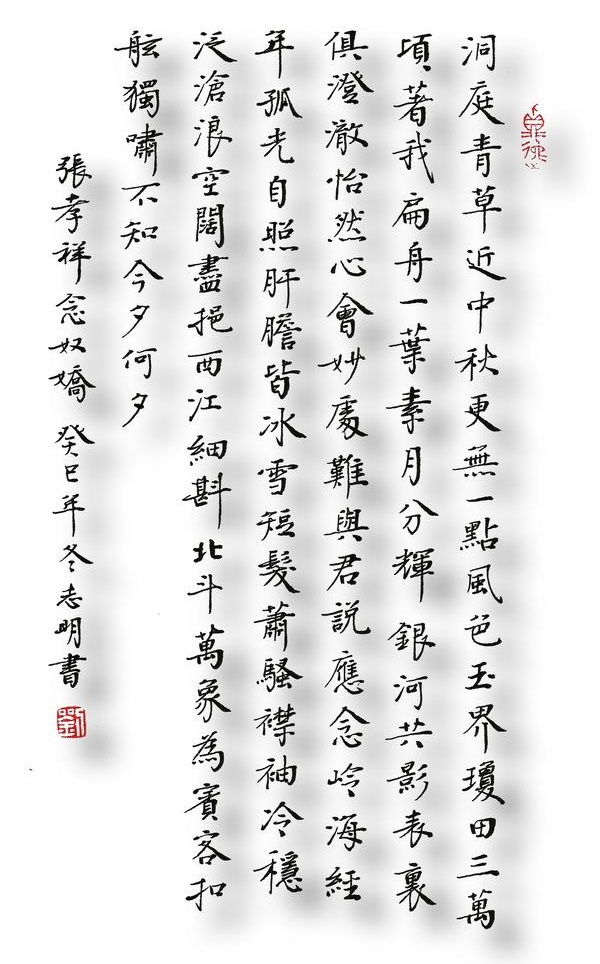 洞庭青草近中秋更無一點風色玉界瓊田三萬
頃著我扁舟一葉素月分輝銀河共影表裏
俱澄澈怡然心會妙處難與君説應念岭海經
年孤光自照肝膽皆冰雪短髮蕭騷襟袖冷穩
泛滄浪空闊盡挹西江細斟北斗萬象為賓客扣
舷獨嘯不知今夕何夕
張孝祥念奴嬌 癸巳年冬志明書
劉